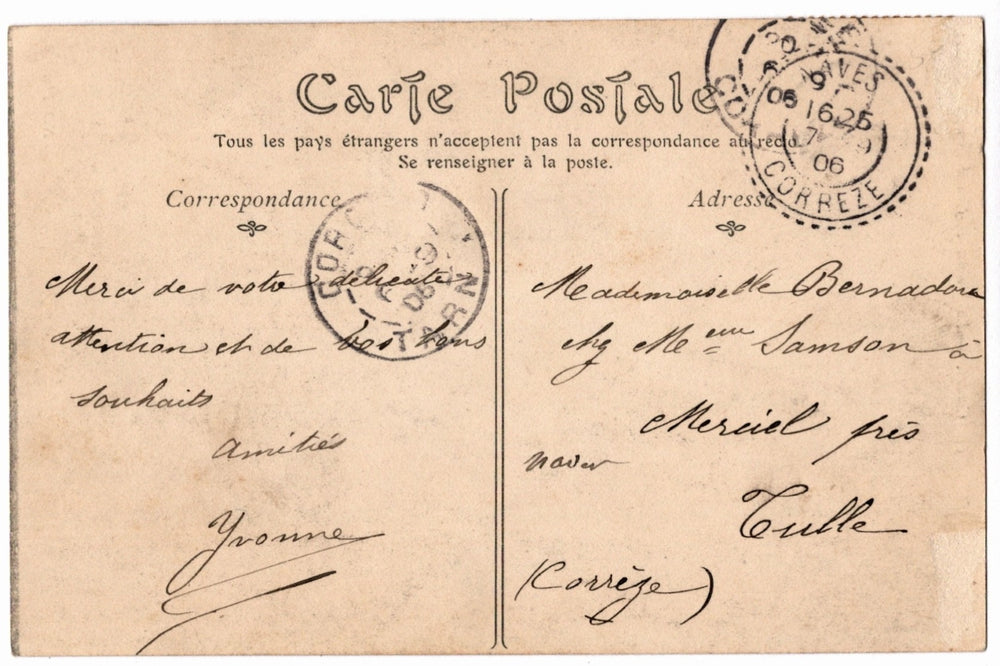 Carte Postale
Tous les pays étrangers n'acceptent pas la correspondance au recto
Se renseigner à la poste.
Correspondance
Merci de votre délicate
attention et de vos bons
souhaits
amitiés
Yvonne
Adresse
Mademoiselle
chez Meeuu Samson à
Merciel près
Tulle
(Corrèze)
NAVES
16 25
7 9
06
CORREZE
TARN